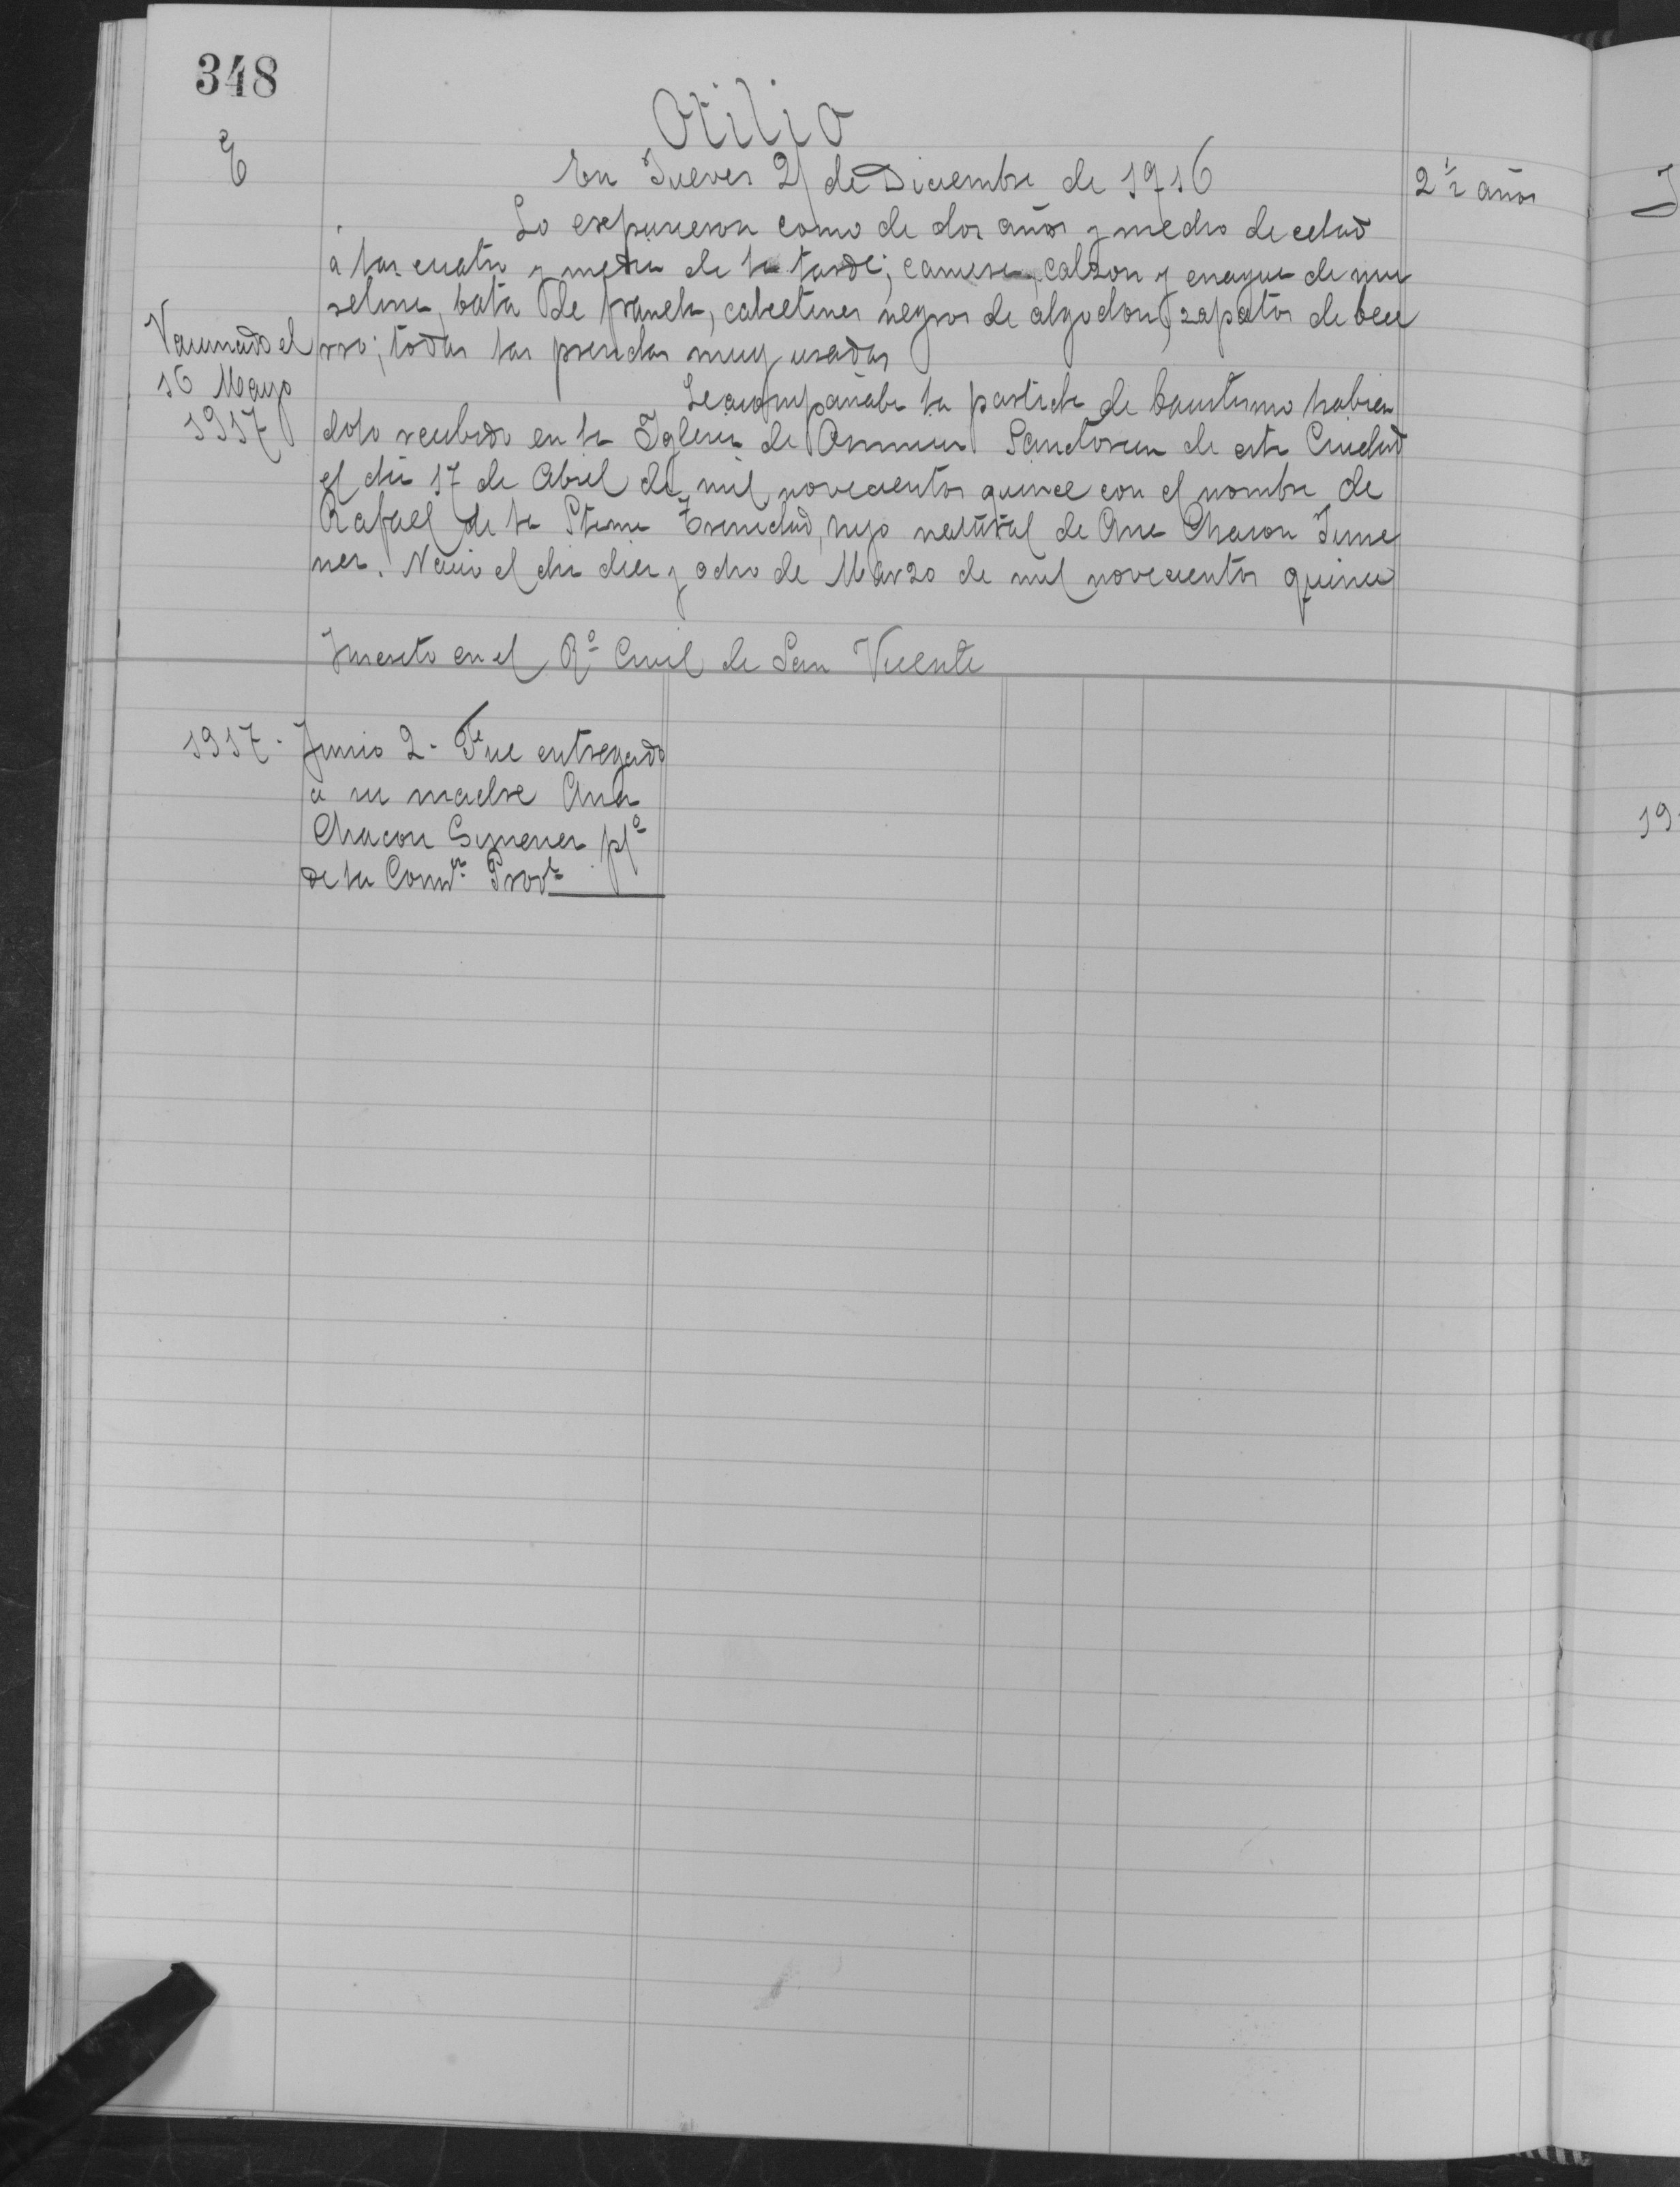 348
Otilio
E
En Jueves 21 de Diciembre de 1916
2 ½ años
Lo expusieron como de dos años y medio de edad
á las cuatro y media de la tarde; camisa, calzon y enagua de mu
selina, bata de franela, calcetines negros de algodon, zapatos de bece
rro; todas las prendas muy usadas
Vacunado el
16 Mayo
1917
Le acompañaba la partida de bautismo habien
dolo recibido en la Iglesia de Omnium Sanctorum de esta Ciudad
el dia 17 de Abril de mil novecientos quince con el nombre de
Rafael de la Stma Trinidad, hijo natural de Ana Chacon Jime
nez. Nació el dia diez y ocho de Marzo de mil novecientos quince
Inserto en el Rº Civil de San Vicente
1917 - Junio 2 - Fue entregado
á su madre Ana
Chacon Gimenez pº
de la Comon Provl
19